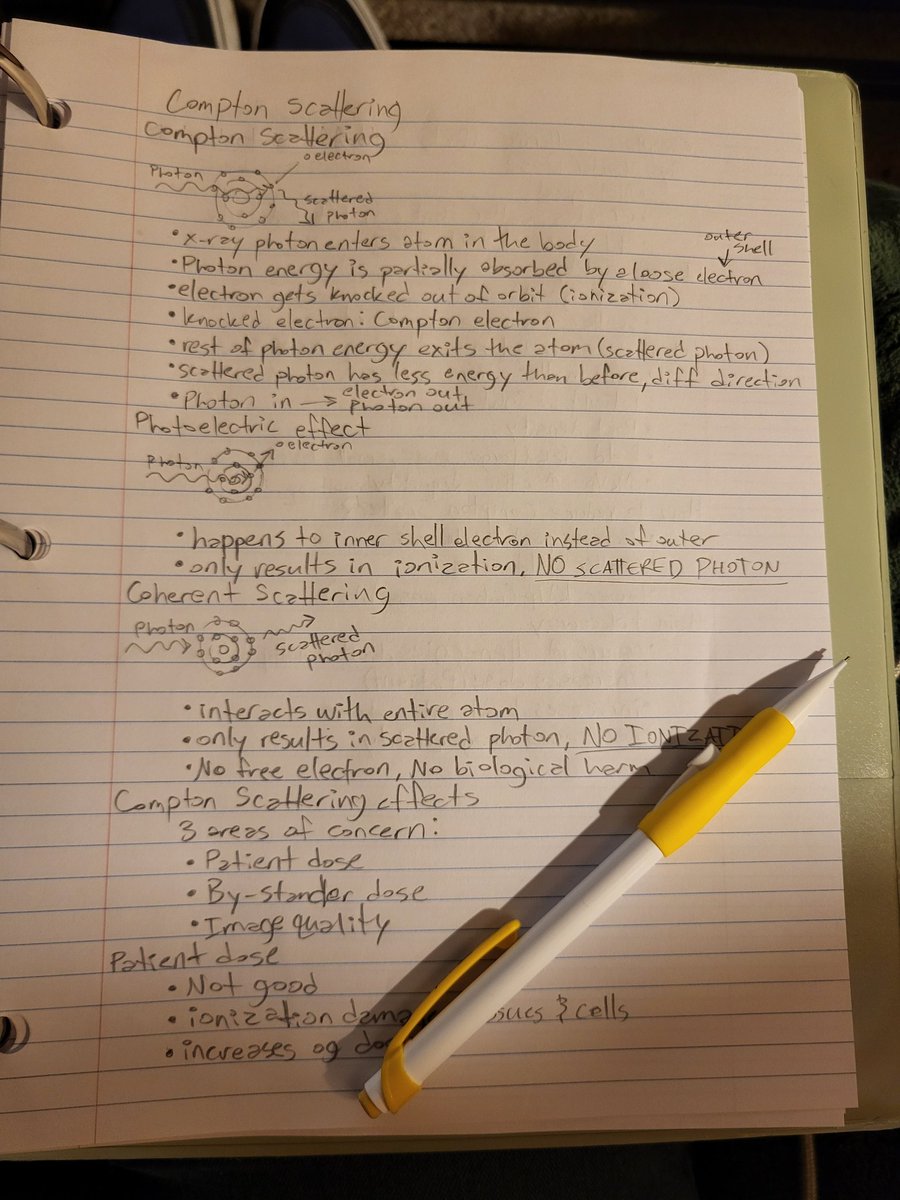 Compton Scattering
Compton Scattering
electron
Photon
scattered
photon
• x-ray photon enters atom in the body
outer
shell
• Photon energy is partially absorbed by a loose electron
• electron gets knocked out of orbit (ionization)
• knocked electron: Compton electron
• rest of photon energy exits the atom (scattered photon)
• scattered photon has less energy then before, diff direction
• Photon in → electron out
photon out
Photoelectric effect
electron
Photon
• happens to inner shell electron instead of outer
• only results in ionization, NO SCATTERED PHOTON
Coherent Scattering
Photon
scattered
photon
• interacts with entire atom
• only results in scattered photon, NO
• No free electron, No biological harm
Compton Scattering effects
3 areas of concern:
• Patient dose
• By-stander dose
• Image quality
Patient dose
• Not good
• ionization & cells
• increases og